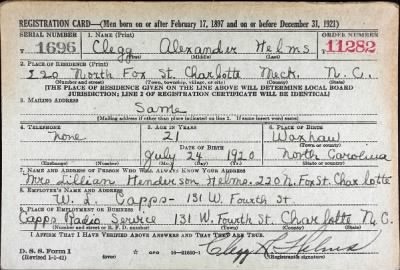 REGISTRATION CARD—(Men born on or after February 17, 1897 and on or before December 31, 1921)
SERIAL NUMBER 1. NAME (Print) ORDER NUMBER
T 1696 Clegg Alexander Helms T 11282
(First) (Middle) (Last)
2. PLACE OF RESIDENCE (Print)
220 North Fox St. Charlotte Meck. N. C.
(Number and street) (Town, township, village, or city) (County) (State)
[THE PLACE OF RESIDENCE GIVEN ON THE LINE ABOVE WILL DETERMINE LOCAL BOARD
JURISDICTION; LINE 2 OF REGISTRATION CERTIFICATE WILL BE IDENTICAL]
3. MAILING ADDRESS
Same
[Mailing address if other than place indicated on line 2. If same insert word same]
4. TELEPHONE 5. AGE IN YEARS 6. PLACE OF BIRTH
none 21 Waxhaw
DATE OF BIRTH (Town or county)
July 24 1920 North Carolina
(Exchange) (Number) (Mo.) (Day) (Yr.) (State or country)
7. NAME AND ADDRESS OF PERSON WHO WILL ALWAYS KNOW YOUR ADDRESS
Mrs Lillian Henderson Helms. 220 N. Fox St. Charlotte
8. EMPLOYER'S NAME AND ADDRESS
W. L. Capps - 131 W. Fourth St.
9. PLACE OF EMPLOYMENT OR BUSINESS
Capps Radio Service 131 W. Fourth St. Charlotte N. C.
(Number and street or R. F. D. number) (Town) (County) (State)
I AFFIRM THAT I HAVE VERIFIED ABOVE ANSWERS AND THAT THEY ARE TRUE.
D. S. S. Form 1 Clegg A Helms
(Revised 1-1-42) (over) 16—21630-1 (Registrant's signature)